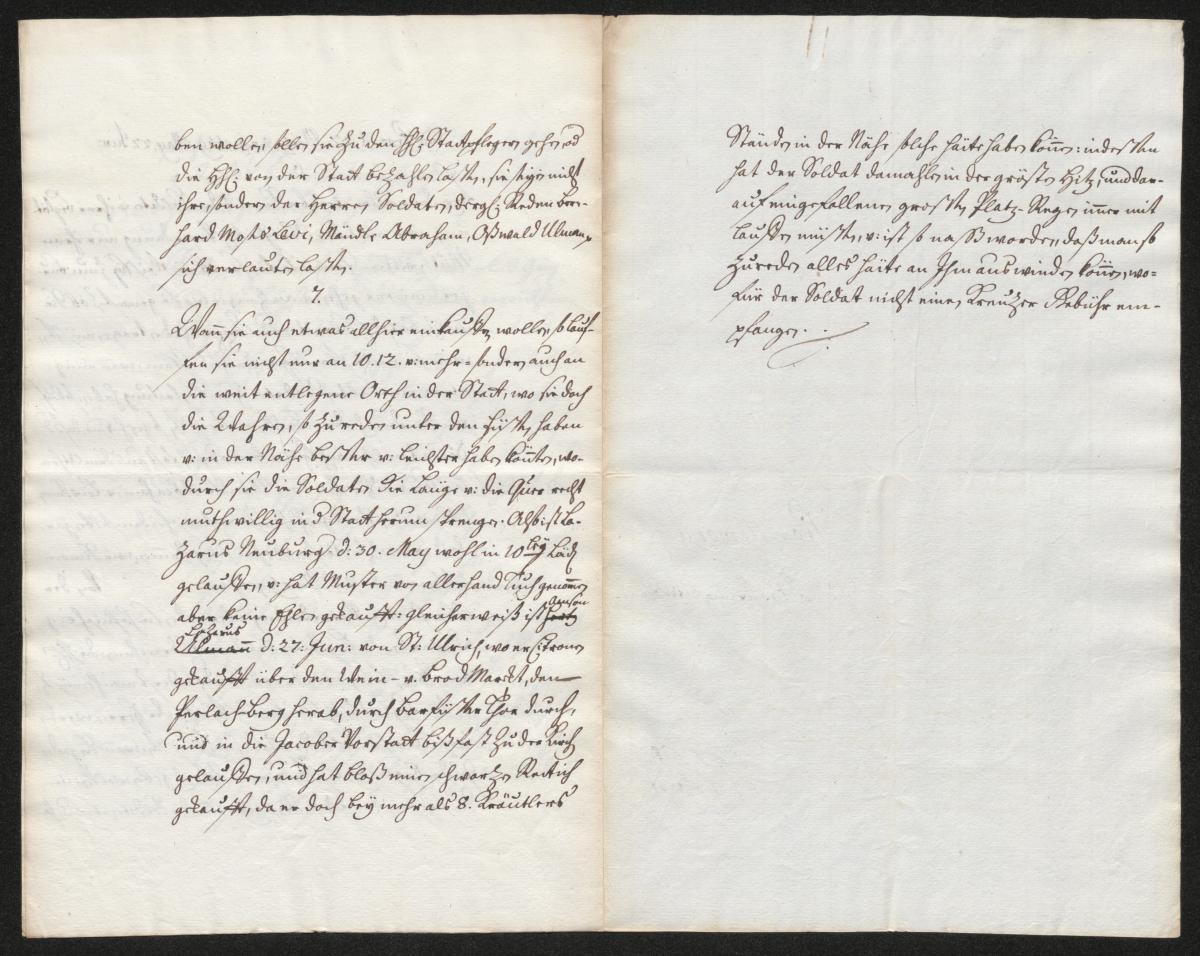 ben wollen, sollen sie zu den HH: Stattpflegern gehen, od
die HH: von der Statt bezahlen lassen, sie seyen nicht
ihre, sondern der Herren Soldaten, dergl: Reden Bern-
hard Moÿs Levi, Mändle Abraham, Oßwald Ulmann
sich verlauten lassen.
7.
Wann sie auch etwas allhier einkauffen wollen, so lauf-
fen sie nicht nur an 10. 12. v: mehr- sondern auch an
die weit entlegene Orth in der Statt, wo sie doch
die Wahren, so zu reden unter den Füssen haben
v: in der Nähe besser v: leichter haben könten, wo-
durch sie die Soldaten die Länge v: die Quer recht
muthwillig in d Statt herum sprengen. Also ist La-
zarus Neuburg. d: 30. May wohl in 10 Läd
geloffen, v: hat Muster von allerhand Tuch genommen
aber keine Ehlen gekaufft: gleicher weiß ist Samson
Ulmann d: 27: Jun: von St: Ulrich, wo er Citronen
gekaufft über den Wein- v. Brod Marckt, den
Perlach-Berg herab, durch Barfüsser Thor durch,
und in die Jacober Vorstatt biß fast zu der Kirch
geloffen, und hat bloß einen schwartzen Rettich
gekaufft, da er doch bey mehr als 8. Kräutlers
Ständen in der Nähe solche hätte haben können: indessen
hat der Soldat damahlen in der grösten Hitz, und dar-
auf eingefallenen grossen Platz-Regen immer mit
lauffen müssen, v: ist so naß worden, daß man so
zu reden alles hätte an Ihm auswinden können, wo-
für der Soldat nicht einen Kreutzer Gebühr em-
pfangen.